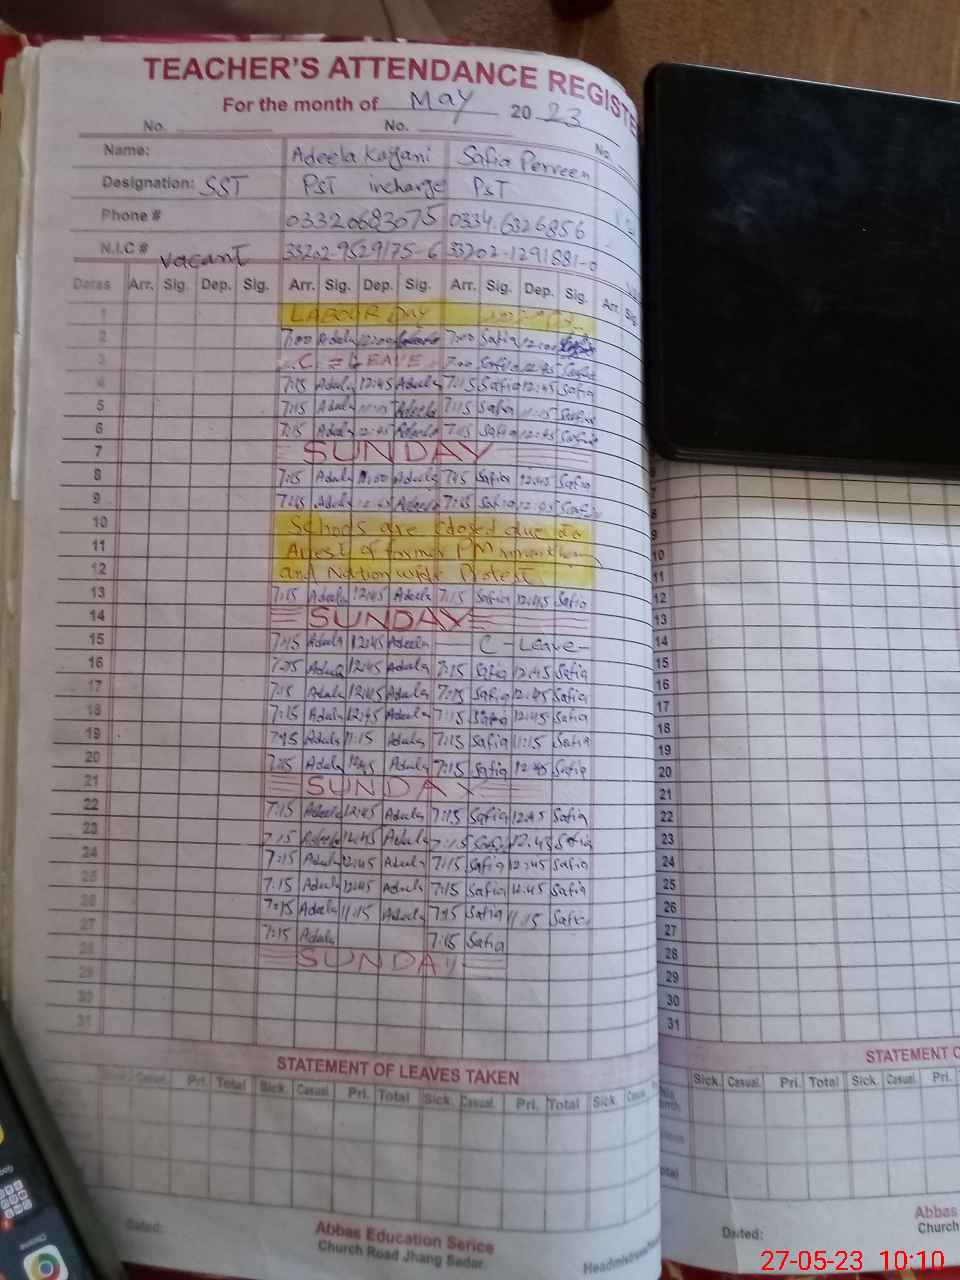 TEACHER'S ATTENDANCE REGISTE
For the month of May 20 23
No. No. No.
Name: Adeela Kayani Safia Perveen
Designation: SST PST incharge PST
Phone # 03320683075 0334-6326856
N.I.C # vacant 33202-9529175-6 33202-1291881-0
Dates Arr. Sig. Dep. Sig. Arr. Sig. Dep. Sig. Arr. Sig. Dep. Sig. Arr. Sig.
1 LABOUR Day
2 7:00 Adeela 7:00 Safia 12:00
3 C LEAVE 7:00 Safia 12:45 Safia
4 7:15 Adeela 12:45 Adeela 7:15 Safia 12:45 Safia
5 7:15 Adeela 11:15 Adeela 7:15 Safia 11:15 Safia
6 7:15 Adeela 12:45 Adeela 7:15 Safia 12:45 Safia
7 SUNDAY
8 7:15 Adeela 11:00 Adeela 7:15 Safia 12:45 Safia
9 7:15 Adeela 12:45 Adeela 7:15 Safia 12:45 Safia
10 Schools are closed due to
11 Arrest of former PM imran khan
12 and Nation wide Protest
13 7:15 Adeela 12:45 Adeela 7:15 Safia 12:45 Safia
14 SUNDAY
15 7:15 Adeela 12:45 Adeela C-Leave-
16 7:15 Adeela 12:45 Adeela 7:15 Safia 12:45 Safia
17 7:15 Adeela 12:45 Adeela 7:15 Safia 12:45 Safia
18 7:15 Adeela 12:45 Adeela 7:15 Safia 12:45 Safia
19 7:15 Adeela 11:15 Adeela 7:15 Safia 11:15 Safia
20 7:15 Adeela 12:45 Adeela 7:15 Safia 12:45 Safia
21 SUNDAY
22 7:15 Adeela 12:45 Adeela 7:15 Safia 12:45 Safia
23 7:15 Adeela 12:45 Adeela 7:15 Safia 12:45 Safia
24 7:15 Adeela 12:45 Adeela 7:15 Safia 12:45 Safia
25 7:15 Adeela 12:45 Adeela 7:15 Safia 12:45 Safia
26 7:15 Adeela 11:15 Adeela 7:15 Safia 11:15 Safia
27 7:15 Adeela 7:15 Safia
28 SUNDAY
29
30
31
STATEMENT OF LEAVES TAKEN
Casual. Pri. Total Sick. Casual. Pri. Total Sick. Casual. Pri. Total Sick.
Dated:
Abbas Education Serice
Church Road Jhang Sadar.
8
9
10
11
12
13
14
15
16
17
18
19
20
21
22
23
24
25
26
27
28
29
30
31
STATEMENT O
Sick. Casual. Pri. Total Sick. Casual. Pri.
Dated:
Abbas
Church
27-05-23 10:10